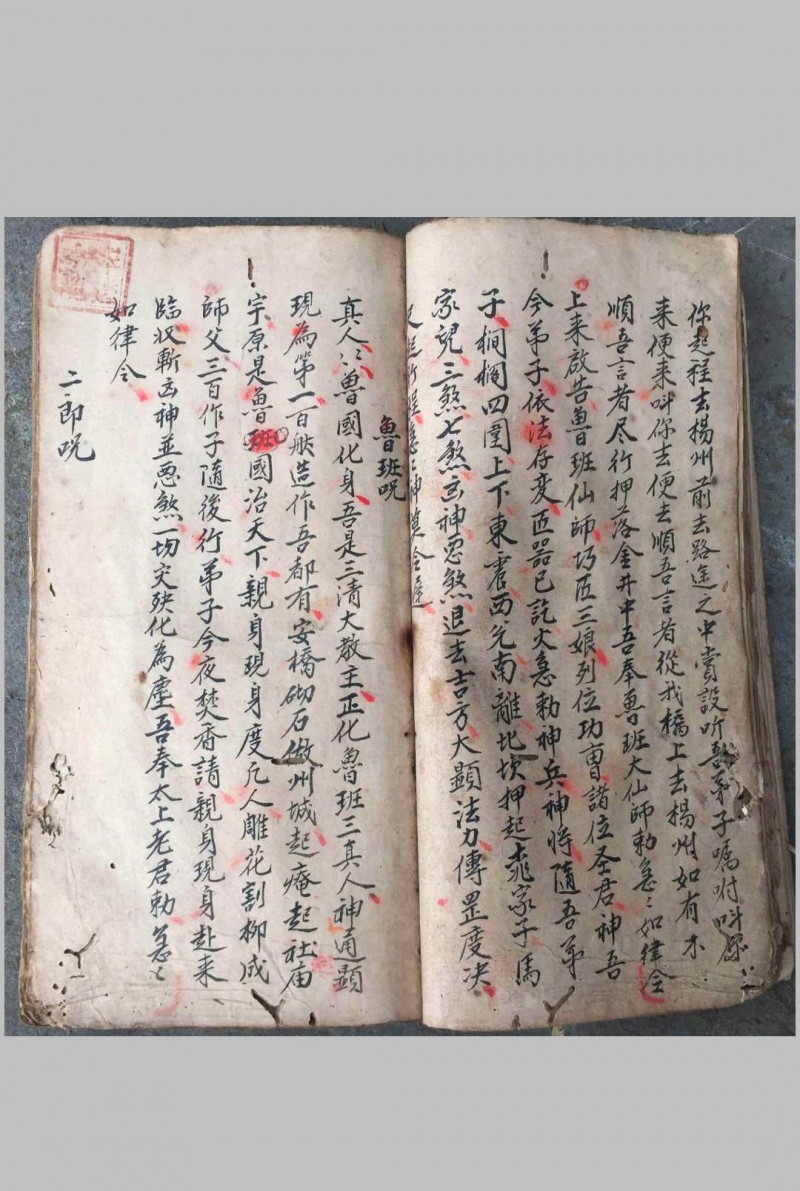 你起程去楊州前去路途之中賞設听吾弟子嘱咐叫你
来便来叫你去便去順吾言者從我橋上去楊州如有不
順吾言者尽行押落金井中吾奉魯班大仙師勅急〻如律令
上来啟告魯班仙師巧匠三娘列位功曹諸位圣君神吾
今弟子依法存变匠器已訖火急勅神兵神將隨吾弟
子 四圍上下東震西兌南離北坎押起 家子馬
家 三煞七煞凶神惡煞退去吉方大顯法力傳罡度决
急〻神 令
魯班咒
真人〻魯國化身吾是三清大教主正化魯班三真人神通顯
現為第一百般造作吾都有安橋砌石做州城起庵起社庙
宇原是魯班國治天下親身現身度凡人雕花割柳成
師父三百作子隨後行弟子今夜焚香請親身現身赴来
臨收斬凶神並惡煞一切灾殃化為塵吾奉太上老君勅急〻
如律令
二郎咒